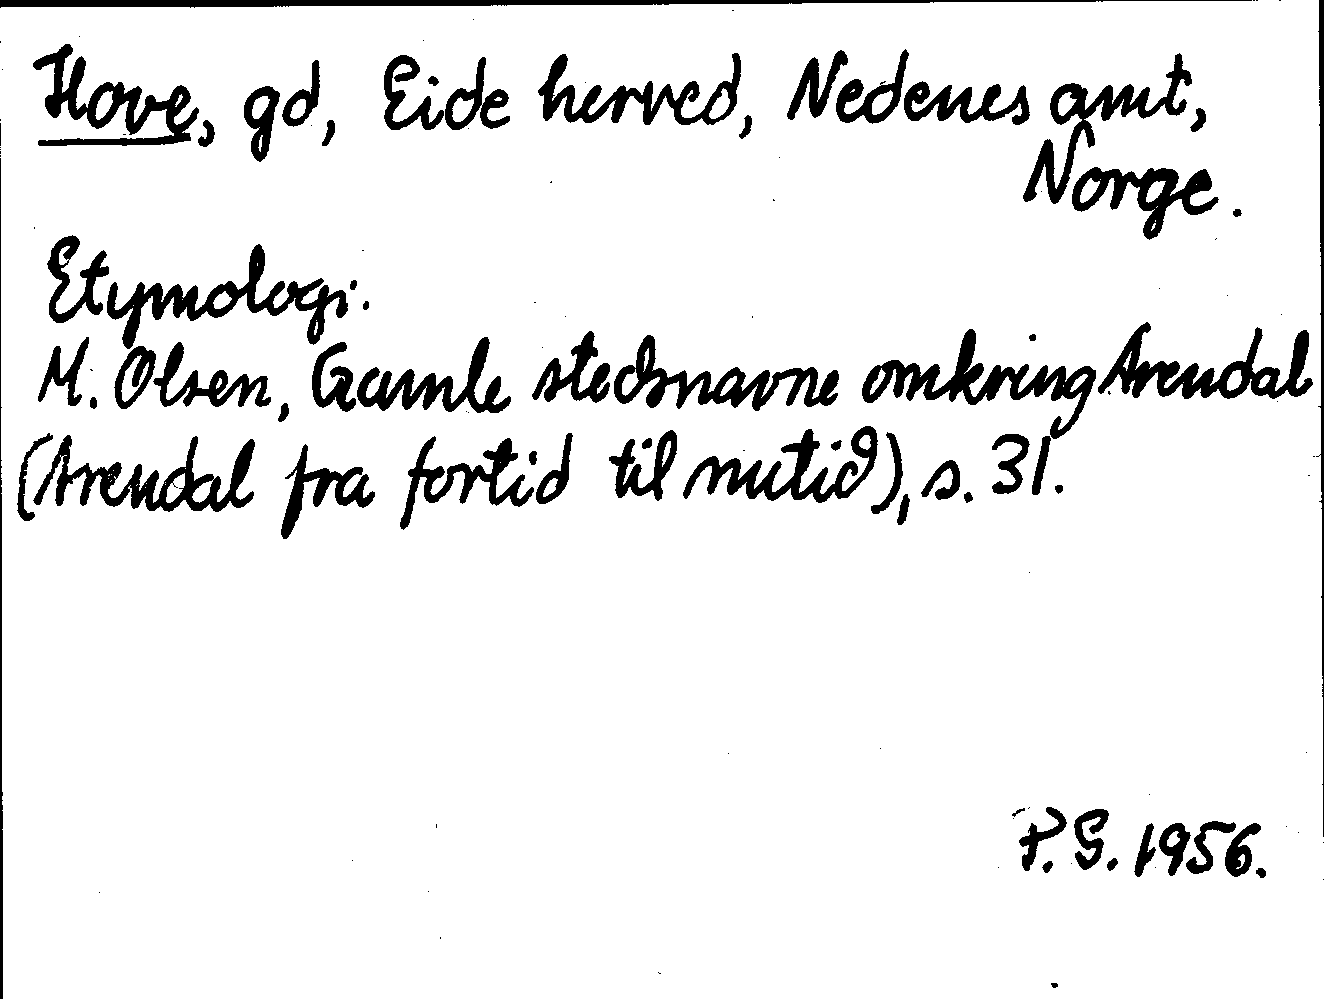 Hove, gd, Eide herred, Nedenes amt,
Norge.
Etymologi.
M. Olsen, Gamle stedsnavne omkring Arendal
(Arendal fra fortid til nutid), s. 31.
P.G. 1956.